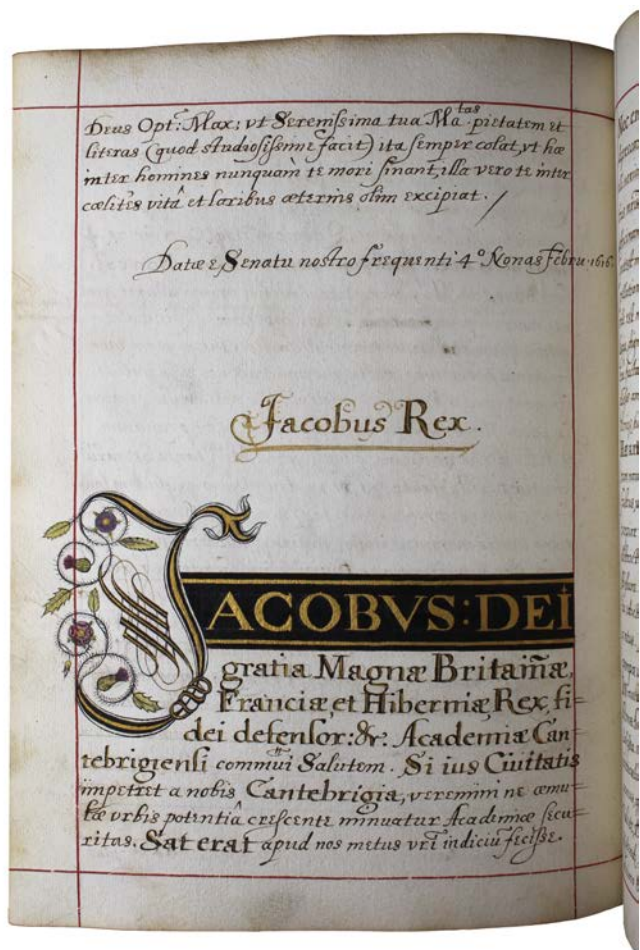 Deus Opt: Max: vt Serenissima tua Ma.tas pietatem et
literas (quod studiosissime facit) ita semper colat, vt hae
inter homines nunquam te mori sinant, illa vero te inter
cœlites vitâ et laribus æternis olim excipiat.
Datæ e Senatu nostro frequenti 4º Nonas Febru. 1616.
Jacobus Rex.
JACOBVS: DEI
gratia Magnæ Britaiñæ,
Franciæ, et Hiberniæ Rex, fi=
dei defensor: &c. Academiæ Can=
tebrigiensi Salutem. Si ius Ciuitatis
impetret a nobis Cantebrigia, veremini ne æmu=
læ vrbis potentiâ crescente minuatur Academiæ secu=
ritas. Sat erat apud nos metus vri indiciũ fecisse.